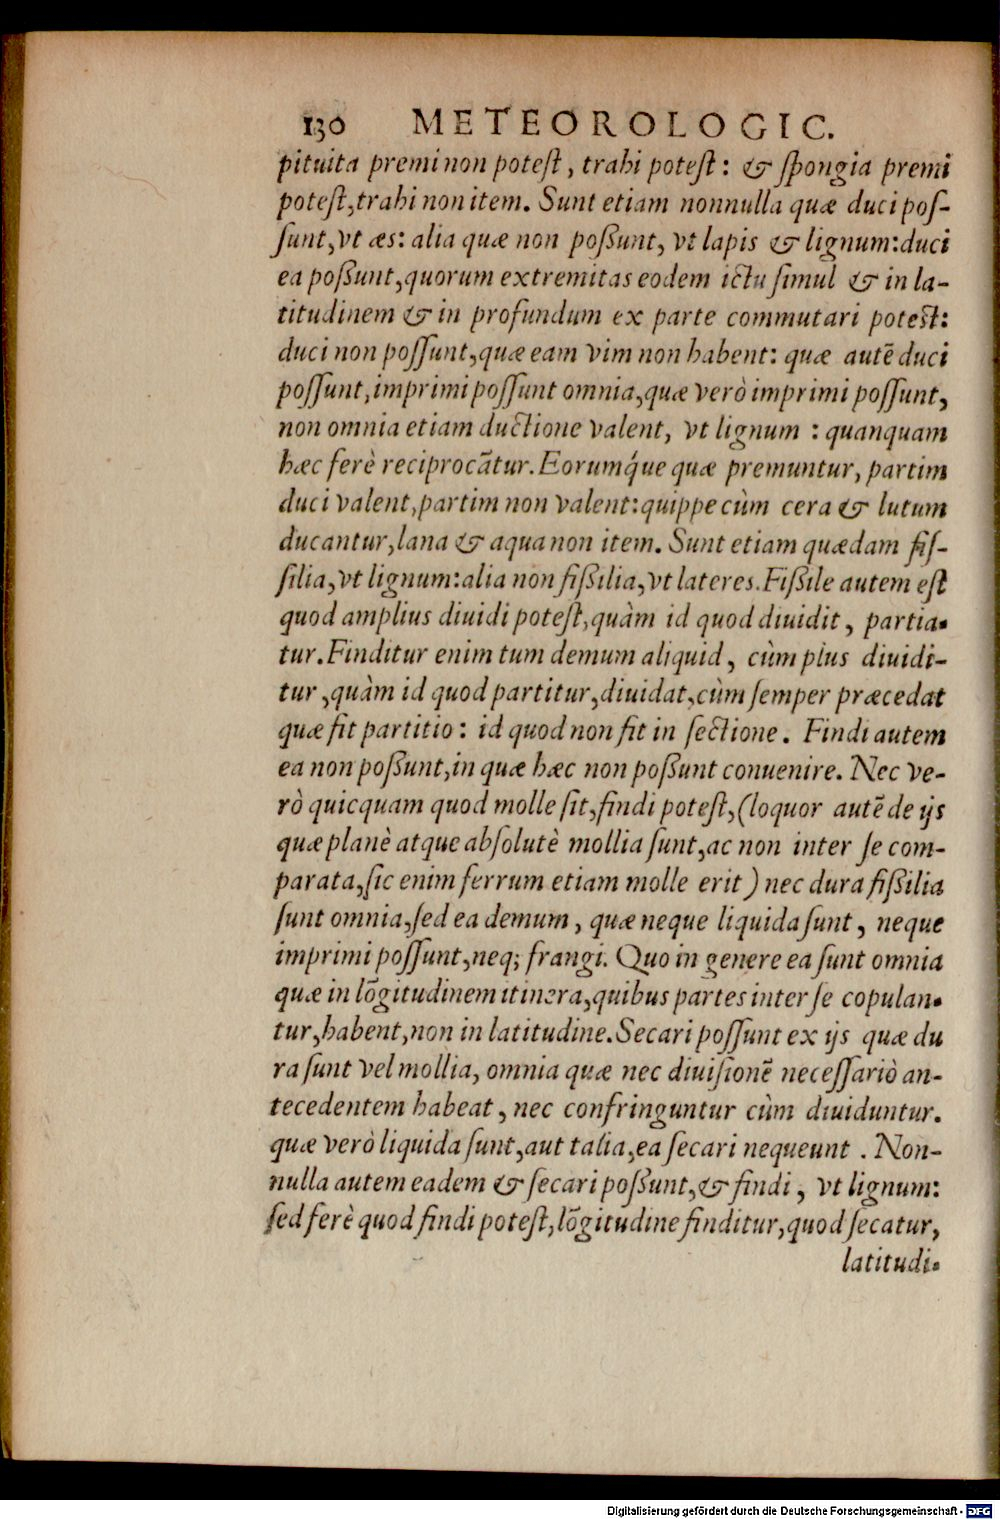 130 METEOROLOGIC.
pituita premi non potest, trahi potest: & spongia premi
potest, trahi non item. Sunt etiam nonnulla quæ duci pos-
sunt, vt æs: alia quæ non possunt, vt lapis & lignum: duci
ea possunt, quorum extremitas eodem ictu simul & in la-
titudinem & in profundum ex parte commutari potest:
duci non possunt, quæ eam vim non habent: quæ autē duci
possunt, imprimi possunt omnia, quæ verò imprimi possunt,
non omnia etiam ductione valent, vt lignum : quanquam
hæc ferè reciprocātur. Eorumq́ue quæ premuntur, partim
duci valent, partim non valent: quippe cùm cera & lutum
ducantur, lana & aqua non item. Sunt etiam quædam fis-
silia, vt lignum: alia non fissilia, vt lateres. Fissile autem est
quod amplius diuidi potest, quàm id quod diuidit, partia-
tur. Finditur enim tum demum aliquid, cùm plus diuidi-
tur, quàm id quod partitur, diuidat, cùm semper præcedat
quæ fit partitio: id quod non fit in sectione. Findi autem
ea non possunt, in quæ hæc non possunt conuenire. Nec ve-
rò quicquam quod molle sit, findi potest, (loquor autē de ijs
quæ planè atque absolutè mollia sunt, ac non inter se com-
parata, sic enim ferrum etiam molle erit) nec dura fissilia
sunt omnia, sed ea demum, quæ neque liquida sunt, neque
imprimi possunt, neq; frangi. Quo in genere ea sunt omnia
quæ in lōgitudinem itinera, quibus partes inter se copulan-
tur, habent, non in latitudine. Secari possunt ex ijs quæ du
ra sunt vel mollia, omnia quæ nec diuisionē necessariò an-
tecedentem habeat, nec confringuntur cùm diuiduntur.
quæ verò liquida sunt, aut talia, ea secari nequeunt . Non-
nulla autem eadem & secari possunt, & findi, vt lignum:
sed ferè quod findi potest, lōgitudine finditur, quod secatur,
latitudi-
Digitalisierung gefördert durch die Deutsche Forschungsgemeinschaft - DFG